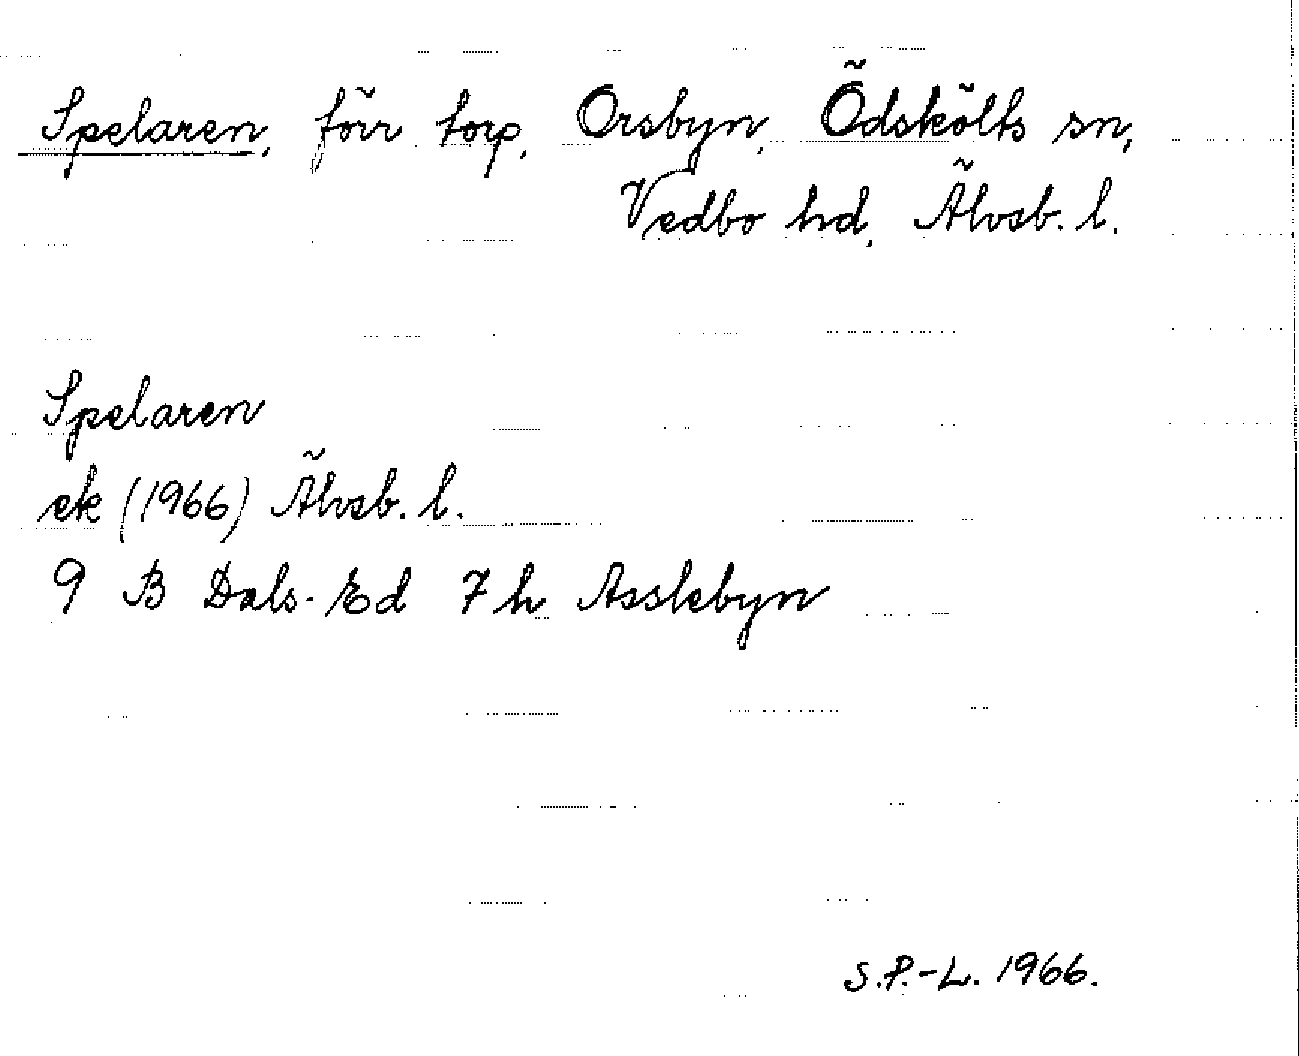 Spelaren, förr torp, Orsbyn, Ödskölts sn,
Vedbo hd, Älvsb. l.
Spelaren
ek (1966) Älvsb. l.
9 B Dals-Ed 7 h Asslebyn
S.P.-L. 1966.